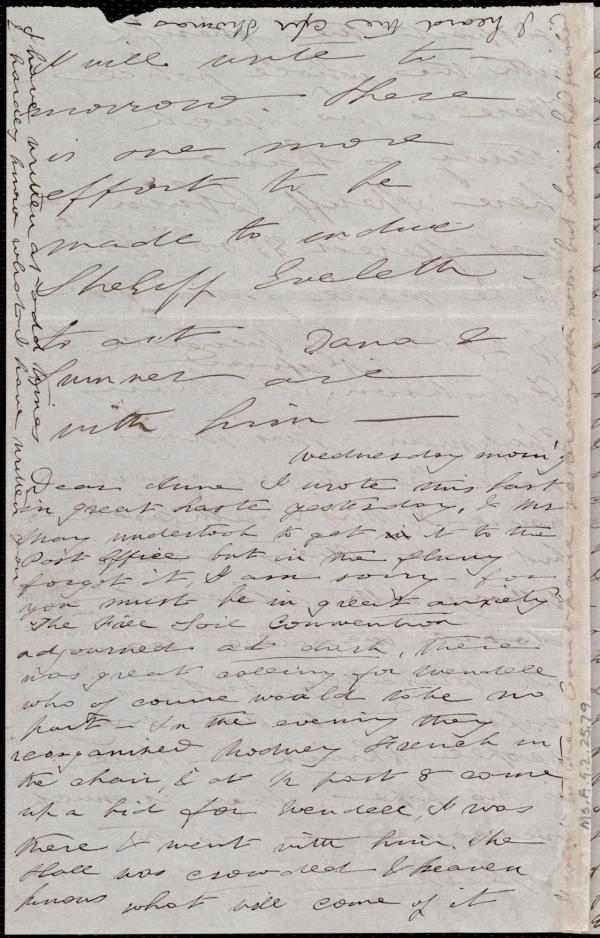 I will write to
morrow. There
is one more
effort to be
made to induce
Sheriff Eveleth
to act Dana &
Sumner are
with him —
Wednesday morn'g
Dear Anne I wrote this last
in great haste yesterday, & Mr
May undertook to get it to the
Post Office but in the flurry
forgot it, I am sorry for
you must be in great anxiety
The Free Soil Convention
adjourned at dusk, there
was great calling for Wendell
who of course would take no
part. In the evening they
reorganised Rodney French in
the chair, & at ½ past 8 came
up a bid for Wendell, I was
there & went with him. The
Hall was crowded & heaven
knows what will come of it
I have written at odd times
I hardly know what I have written
I heard the Thomas —
Ms.A.9.2.25.79